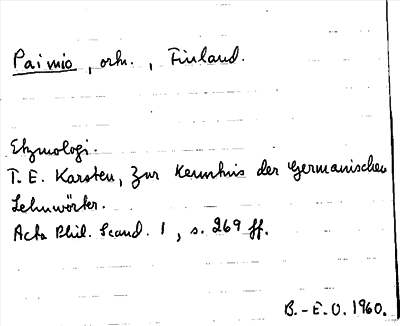 Paimio, ortn., Finland.
Etymologi.
T. E. Karsten, Zur Kenntnis der Germanischen
Lehnwörter.
Acta Phil. Scand. 1, s. 269 ff.
B.-E.O. 1960.